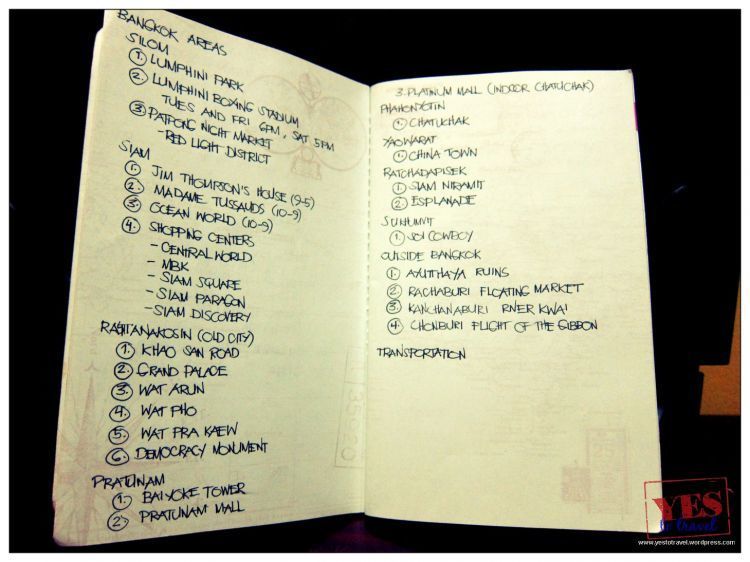 BANGKOK AREAS
SILOM
1. LUMPHINI PARK
2. LUMPHINI BOXING STADIUM
TUES AND FRI 6PM, SAT 5PM
3. PATPONG NIGHT MARKET
- RED LIGHT DISTRICT
SIAM
1. JIM THOMPSON'S HOUSE (9-5)
2. MADAME TUSSAUDS (10-9)
3. OCEAN WORLD (10-9)
4. SHOPPING CENTERS
- CENTRAL WORLD
- MBK
- SIAM SQUARE
- SIAM PARAGON
- SIAM DISCOVERY
RASTTANAKOSIN (OLD CITY)
1. KHAO SAN ROAD
2. GRAND PALACE
3. WAT ARUN
4. WAT PHO
5. WAT PRA KAEW
6. DEMOCRACY MONUMENT
PRATUNAM
1. BAIYOKE TOWER
2. PRATUNAM MALL
3. PLATINUM MALL (INDOOR CHATUCHAK)
PHAHONYOTIN
1. CHATUCHAK
YAOWARAT
1. CHINA TOWN
RATCHADAPISEK
1. SIAM NIRAMIT
2. ESPLANADE
SUKHUMVIT
1. SOI COWBOY
OUTSIDE BANGKOK
1. AYUTHAYA RUINS
2. RACHABURI FLOATING MARKET
3. KANCHANABURI RIVER KWAI
4. CHONBURI FLIGHT OF THE GIBBON
TRANSPORTATION
YES
to travel
www.yestotravel.wordpress.com